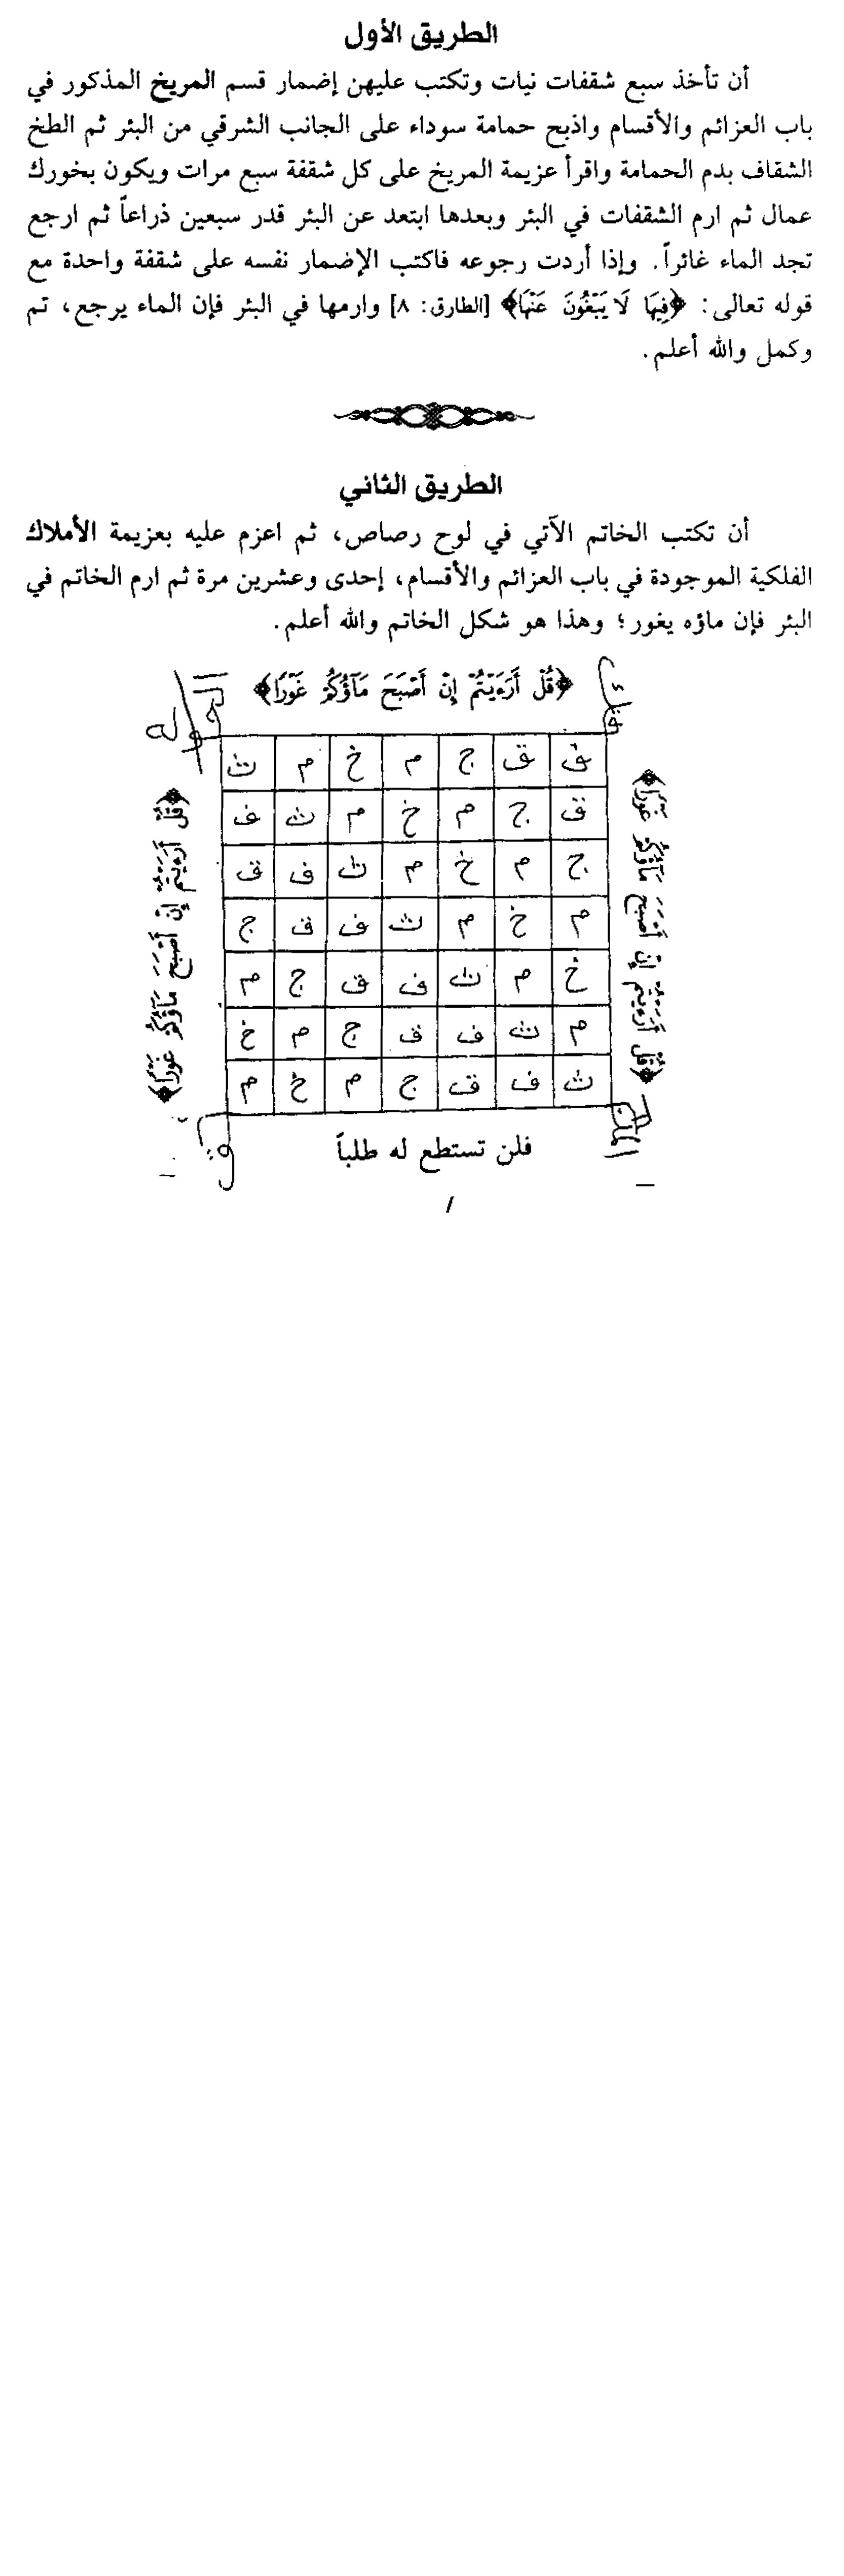 الطريق الأول
أن تأخذ سبع شقفات نيات وتكتب عليهن إضمار قسم المريخ المذكور في
باب العزائم والأقسام واذبح حمامة سوداء على الجانب الشرقي من البئر ثم الطخ
الشقاف بدم الحمامة واقرأ عزيمة المريخ على كل شقفة سبع مرات ويكون بخورك
عمال ثم ارم الشقفات في البئر وبعدها ابتعد عن البئر قدر سبعين ذراعاً ثم ارجع
تجد الماء غائراً. وإذا أردت رجوعه فاكتب الإضمار نفسه على شقفة واحدة مع
قوله تعالى: ﴿فِيهَا لَا يَبْغُونَ عَنْهَا﴾ [الطارق: ٨] وارمها في البئر فإن الماء يرجع، تم
وكمل والله أعلم.
الطريق الثاني
أن تكتب الخاتم الآتي في لوح رصاص، ثم اعزم عليه بعزيمة الأملاك
الفلكية الموجودة في باب العزائم والأقسام، إحدى وعشرين مرة ثم ارم الخاتم في
البئر فإن ماؤه يغور؛ وهذا هو شكل الخاتم والله أعلم.
﴿قُلْ أَرَءَيْتُمْ إِنْ أَصْبَحَ مَآؤُكُمْ غَوْرًا﴾
﴿قُلْ أَرَءَيْتُمْ إِنْ أَصْبَحَ مَآؤُكُمْ غَوْرًا﴾
ف ق ج م خ م ث
ق ج م خ م ث ف
ج م خ م ث ف ق
م خ م ث ف ق ج
خ م ث ف ق ج م
م ث ف ق ج م خ
ث ف ق ج م خ م
﴿قُلْ أَرَءَيْتُمْ إِنْ أَصْبَحَ مَآؤُكُمْ غَوْرًا﴾
فلن تستطع له طلباً